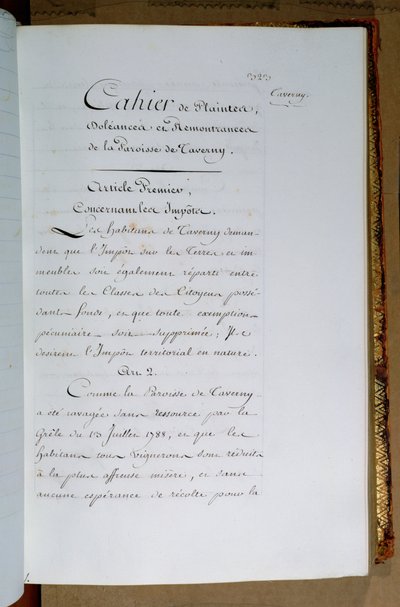 323
Taverny.
Cahier de Plaintes,
Doléances et Remontrances
de la Paroisse de Taverny.
Article Premier,
Concernant les Impôts.
Les habitans de Taverny deman-
dent que l'Impôt sur les Terres et im-
meubles soit également réparti entre
toutes les Classes des Citoyens possé-
dant fonds, et que toute exemption
pécuniaire soit supprimée; Ils
desirent l'Impôt territorial en nature.
Art 2.
Comme la Paroisse de Taverny
a été ravagée sans ressource par la
Grêle du 13 Juillet 1788, et que les
habitans tous Vignerons sont réduits
à la plus affreuse misère, et sans
aucune espérance de récolte pour la